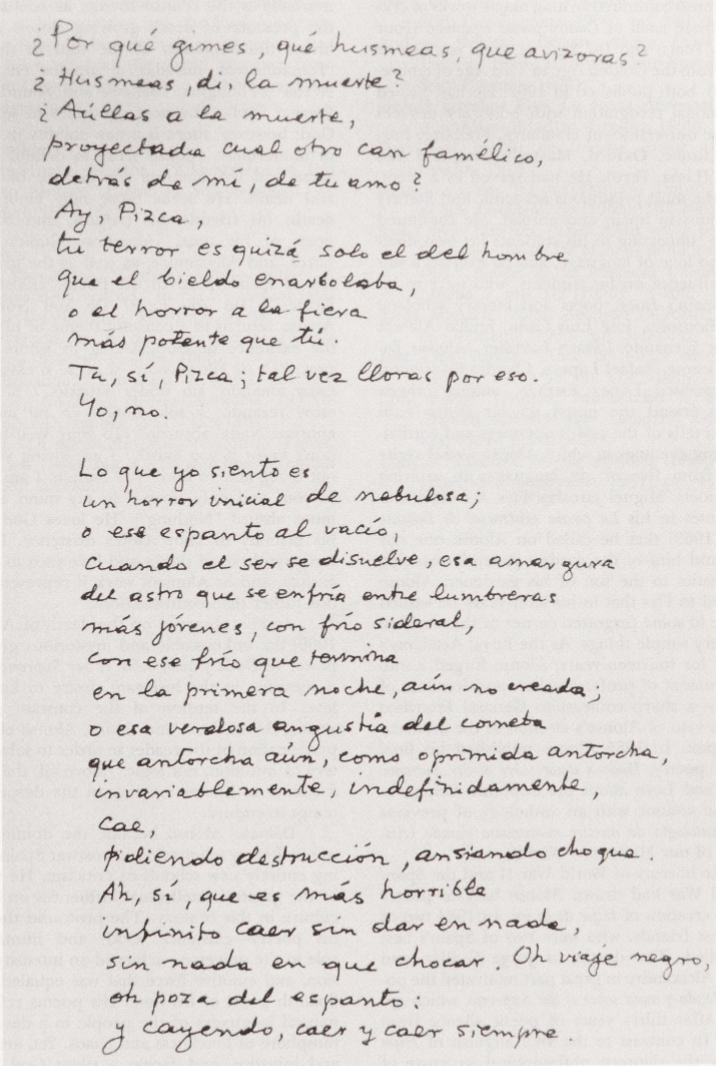 ¿Por qué gimes, qué husmeas, que avizoras?
¿Husmeas, di, la muerte?
¿Aúllas a la muerte,
proyectada cual otro can famélico,
detrás de mí, de tu amo?
Ay, Pizca,
tu terror es quizá solo el del hombre
que el bieldo enarbolaba,
o el horror a la fiera
más potente que tú.
Tu, sí, Pizca; tal vez lloras por eso.
Yo, no.
Lo que yo siento es
un horror inicial de nebulosa;
o ese espanto al vacío,
cuando el ser se disuelve, esa amargura
del astro que se enfría entre lumbreras
más jóvenes, con frío sideral,
con ese frío que termina
en la primera noche, aún no creada;
o esa verdosa angustia del cometa
que antorcha aún, como oprimida antorcha,
invariablemente, indefinidamente,
cae,
pidiendo destrucción, ansiando choque.
Ah, sí, que es más horrible
infinito caer sin dar en nada,
sin nada en que chocar. Oh viaje negro,
oh poza del espanto:
y cayendo, caer y caer siempre.